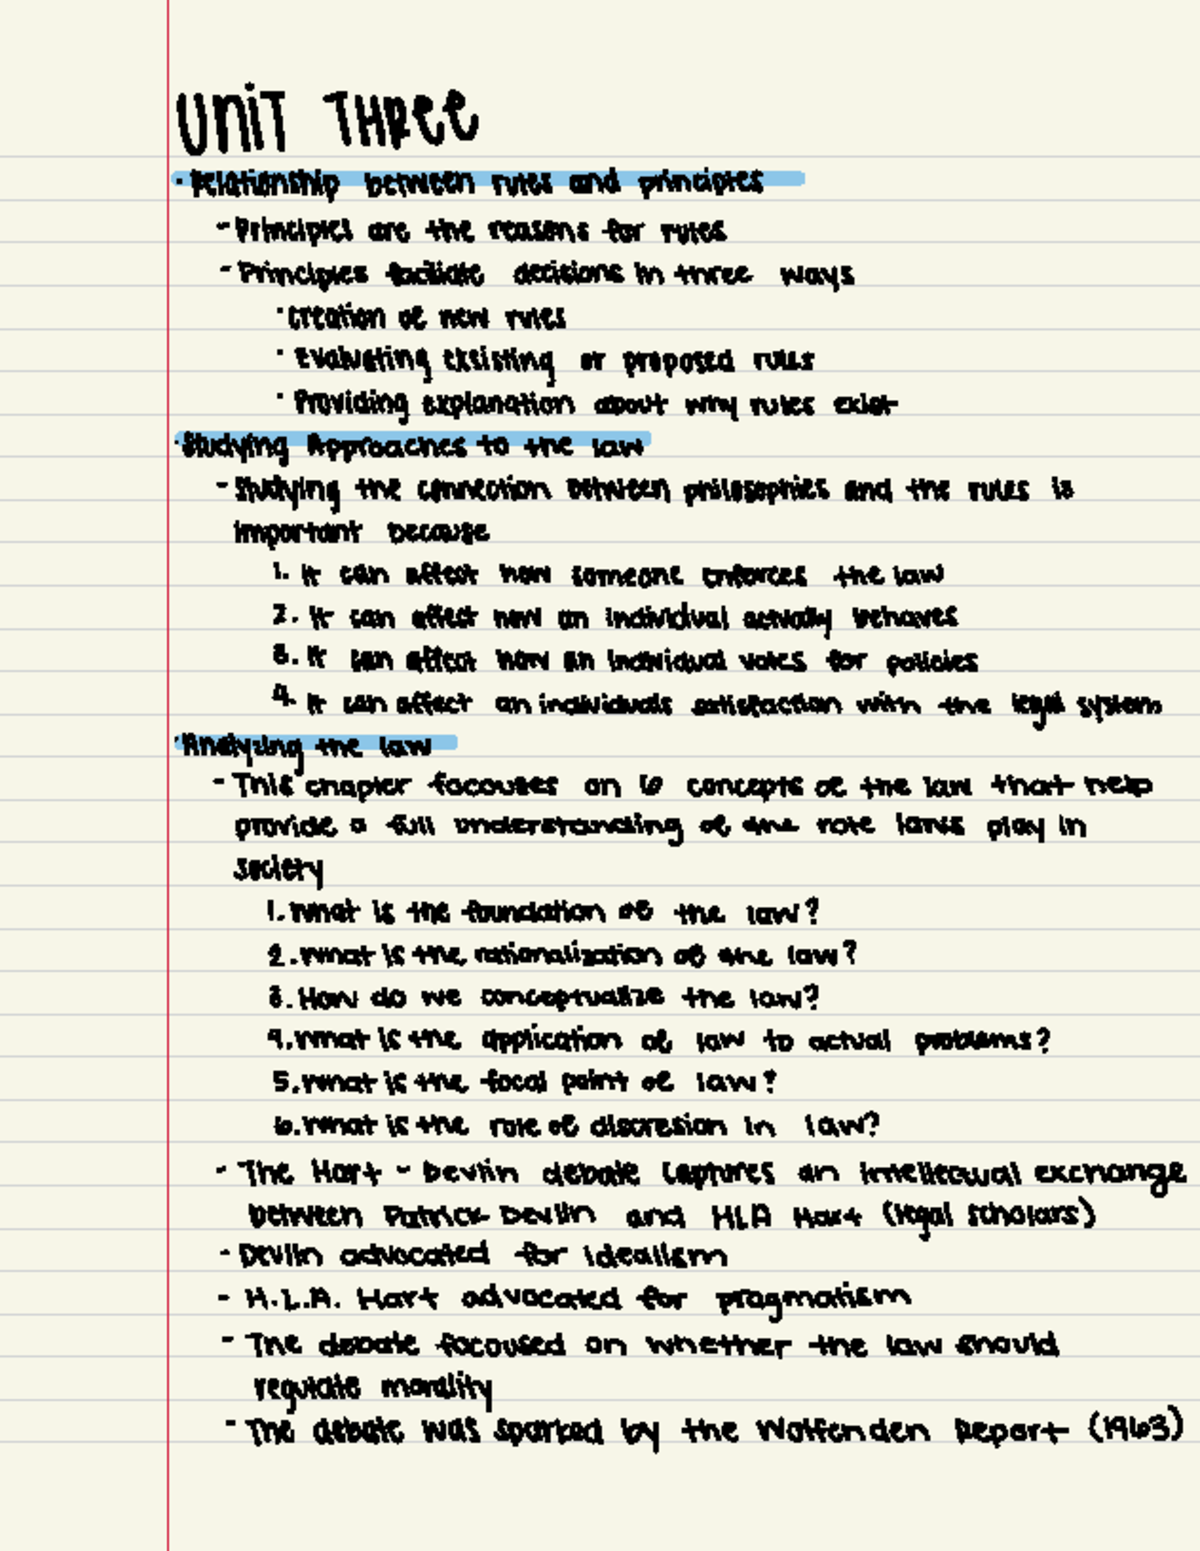 UNIT THREE
· Relationship between rules and principles
- Principles are the reasons for rules
- Principles faciliate decisions in three ways
· creation of new rules
· Evaluating exsisting or proposed rules
· Providing explanation about why rules exist
· Studying Approaches to the law
- Studying the connection between philosophies and the rules is
important because
1. It can affect how someone enforces the law
2. It can affect how an individual actually behaves
3. It can affect how an individual votes for policies
4. It can affect an individuals satisfaction with the legal system
· Analyzing the law
- This chapter focouses on 6 concepts of the law that help
provide a full understanding of the role laws play in
society
1. What is the foundation of the law?
2. What is the rationalization of the law?
3. How do we conceptualize the law?
4. What is the application of law to actual problems?
5. What is the focal point of law?
6. What is the role of discresion in law?
- The Hart - Devlin debate captures an intellectual exchange
between Patrick Devlin and HLA Hart (legal scholars)
- Devlin advocated for idealism
- H.L.A. Hart advocated for pragmatism
- The debate focoused on whether the law should
regulate morality
- The debate was sparked by the Wolfenden Report (1963)